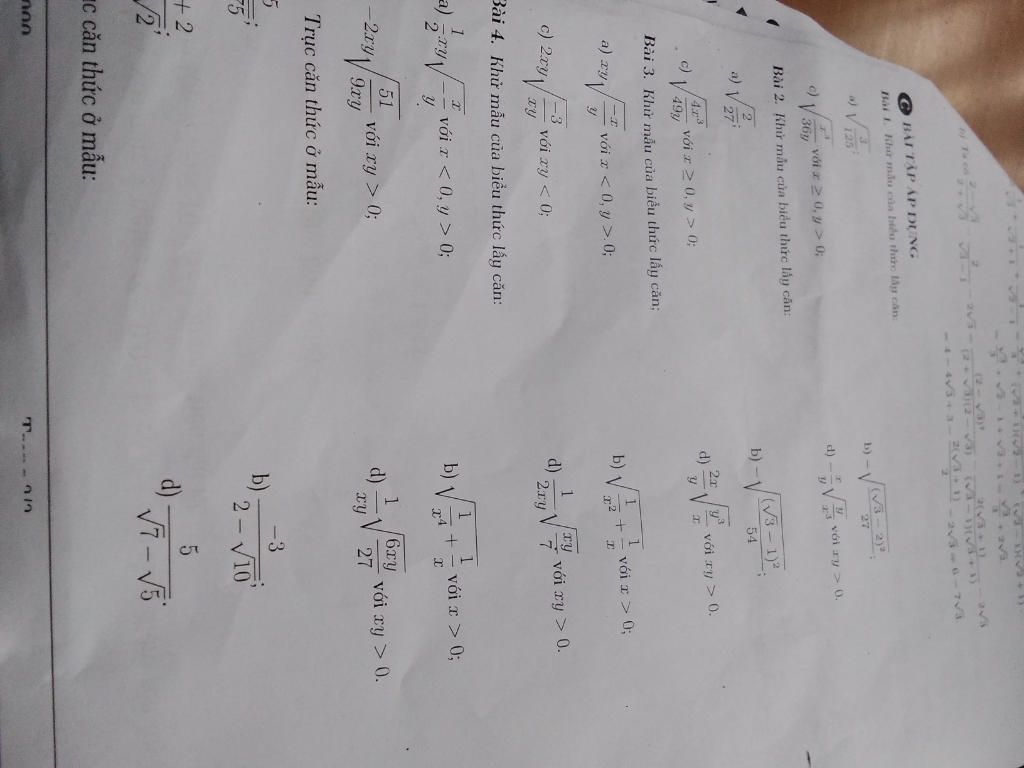 BÀI TẬP ÁP DỤNG
Bài 1. Khử mẫu của biểu thức lấy căn:
a) √(3/125);
b) −√((√3 − 2)²/27);
c) √(x³/36y) với x ≥ 0, y > 0;
d) −(x/y)√(y/x³) với xy > 0.
Bài 2. Khử mẫu của biểu thức lấy căn:
a) √(2/27);
b) −√((√3 − 1)²/54);
c) √(4x³/49y) với x ≥ 0, y > 0;
d) (2x/y)√(y³/x) với xy > 0.
Bài 3. Khử mẫu của biểu thức lấy căn;
a) xy√(−x/y) với x < 0, y > 0;
b) √(1/x² + 1/x) với x > 0;
c) 2xy√(−3/xy) với xy < 0;
d) (1/2xy)√(xy/7) với xy > 0.
Bài 4. Khử mẫu của biểu thức lấy căn:
a) (1/2)xy√(−x/y) với x < 0, y > 0;
b) √(1/x⁴ + 1/x) với x > 0;
−2xy√(51/9xy) với xy > 0;
d) (1/xy)√(6xy/27) với xy > 0.
Trục căn thức ở mẫu:
b) −3/(2 − √10);
d) 5/(√7 − √5);
căn thức ở mẫu: